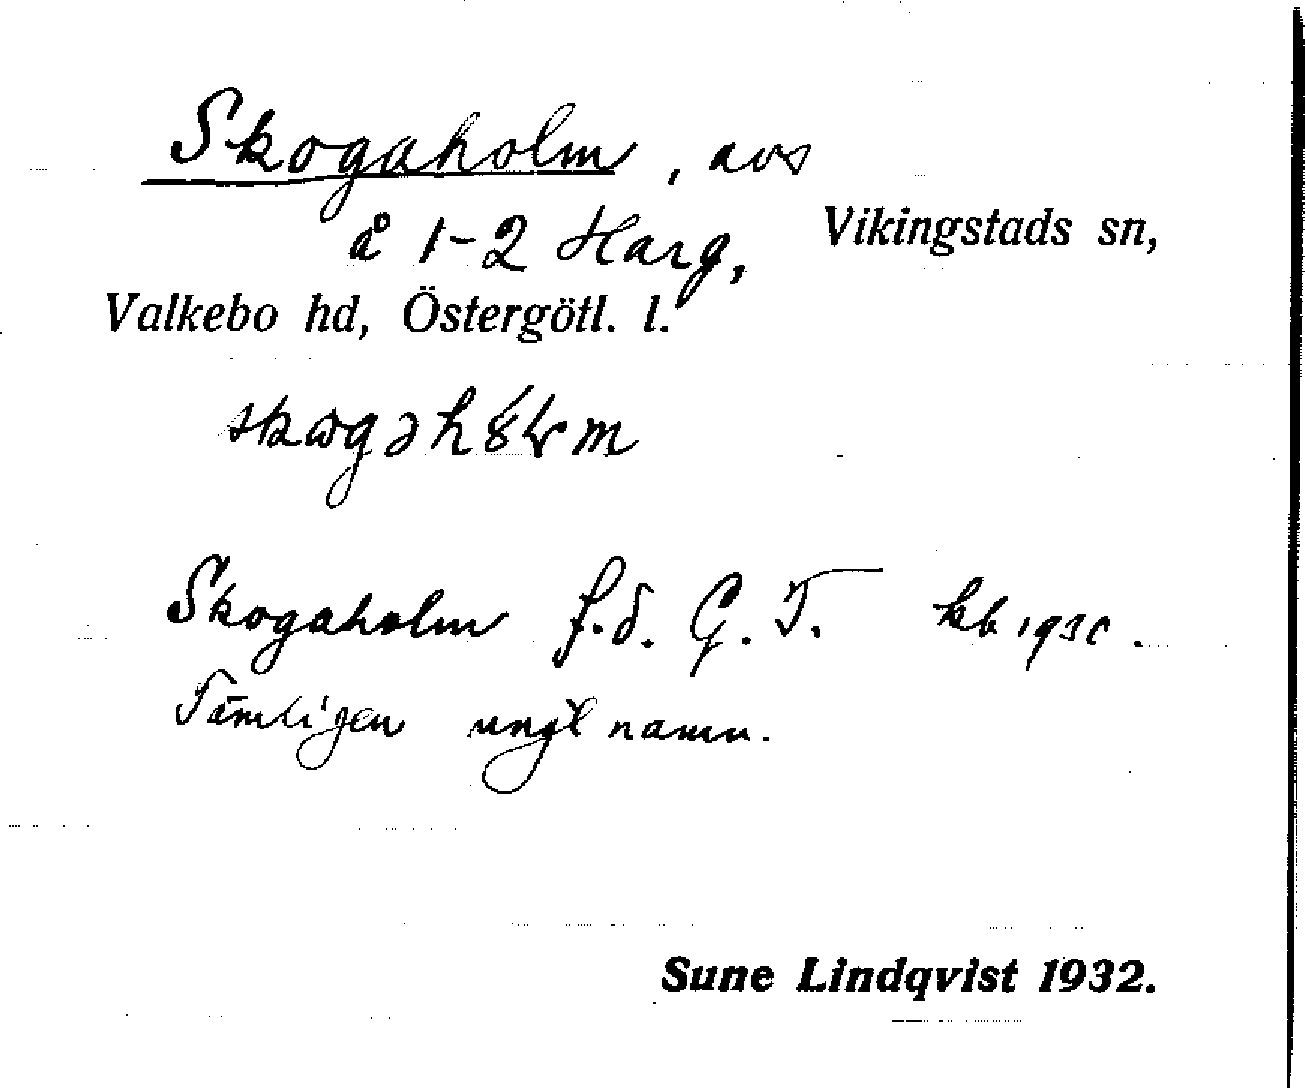 Skogaholm, avs
å 1-2 Harg, Vikingstads sn,
Valkebo hd, Östergötl. l.
Skogaholm f.d. G. T. kb 1930.
Tämligen ungt namn.
Sune Lindqvist 1932.